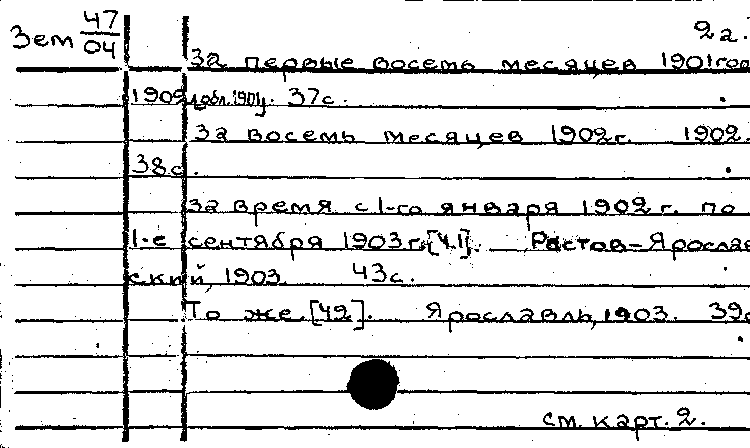 Зем 47/04
2а.
За первые восемь месяцев 1901 год
1902 [обл. 1901]. 37с.
За восемь месяцев 1902г. 1902.
38с.
За время с 1-го января 1902 г. по
1-е сентября 1903 г. [ч.1]. Ростов-Ярослав
ский, 1903. 43с.
То же. [ч2]. Ярославль, 1903. 39с
см. карт. 2.